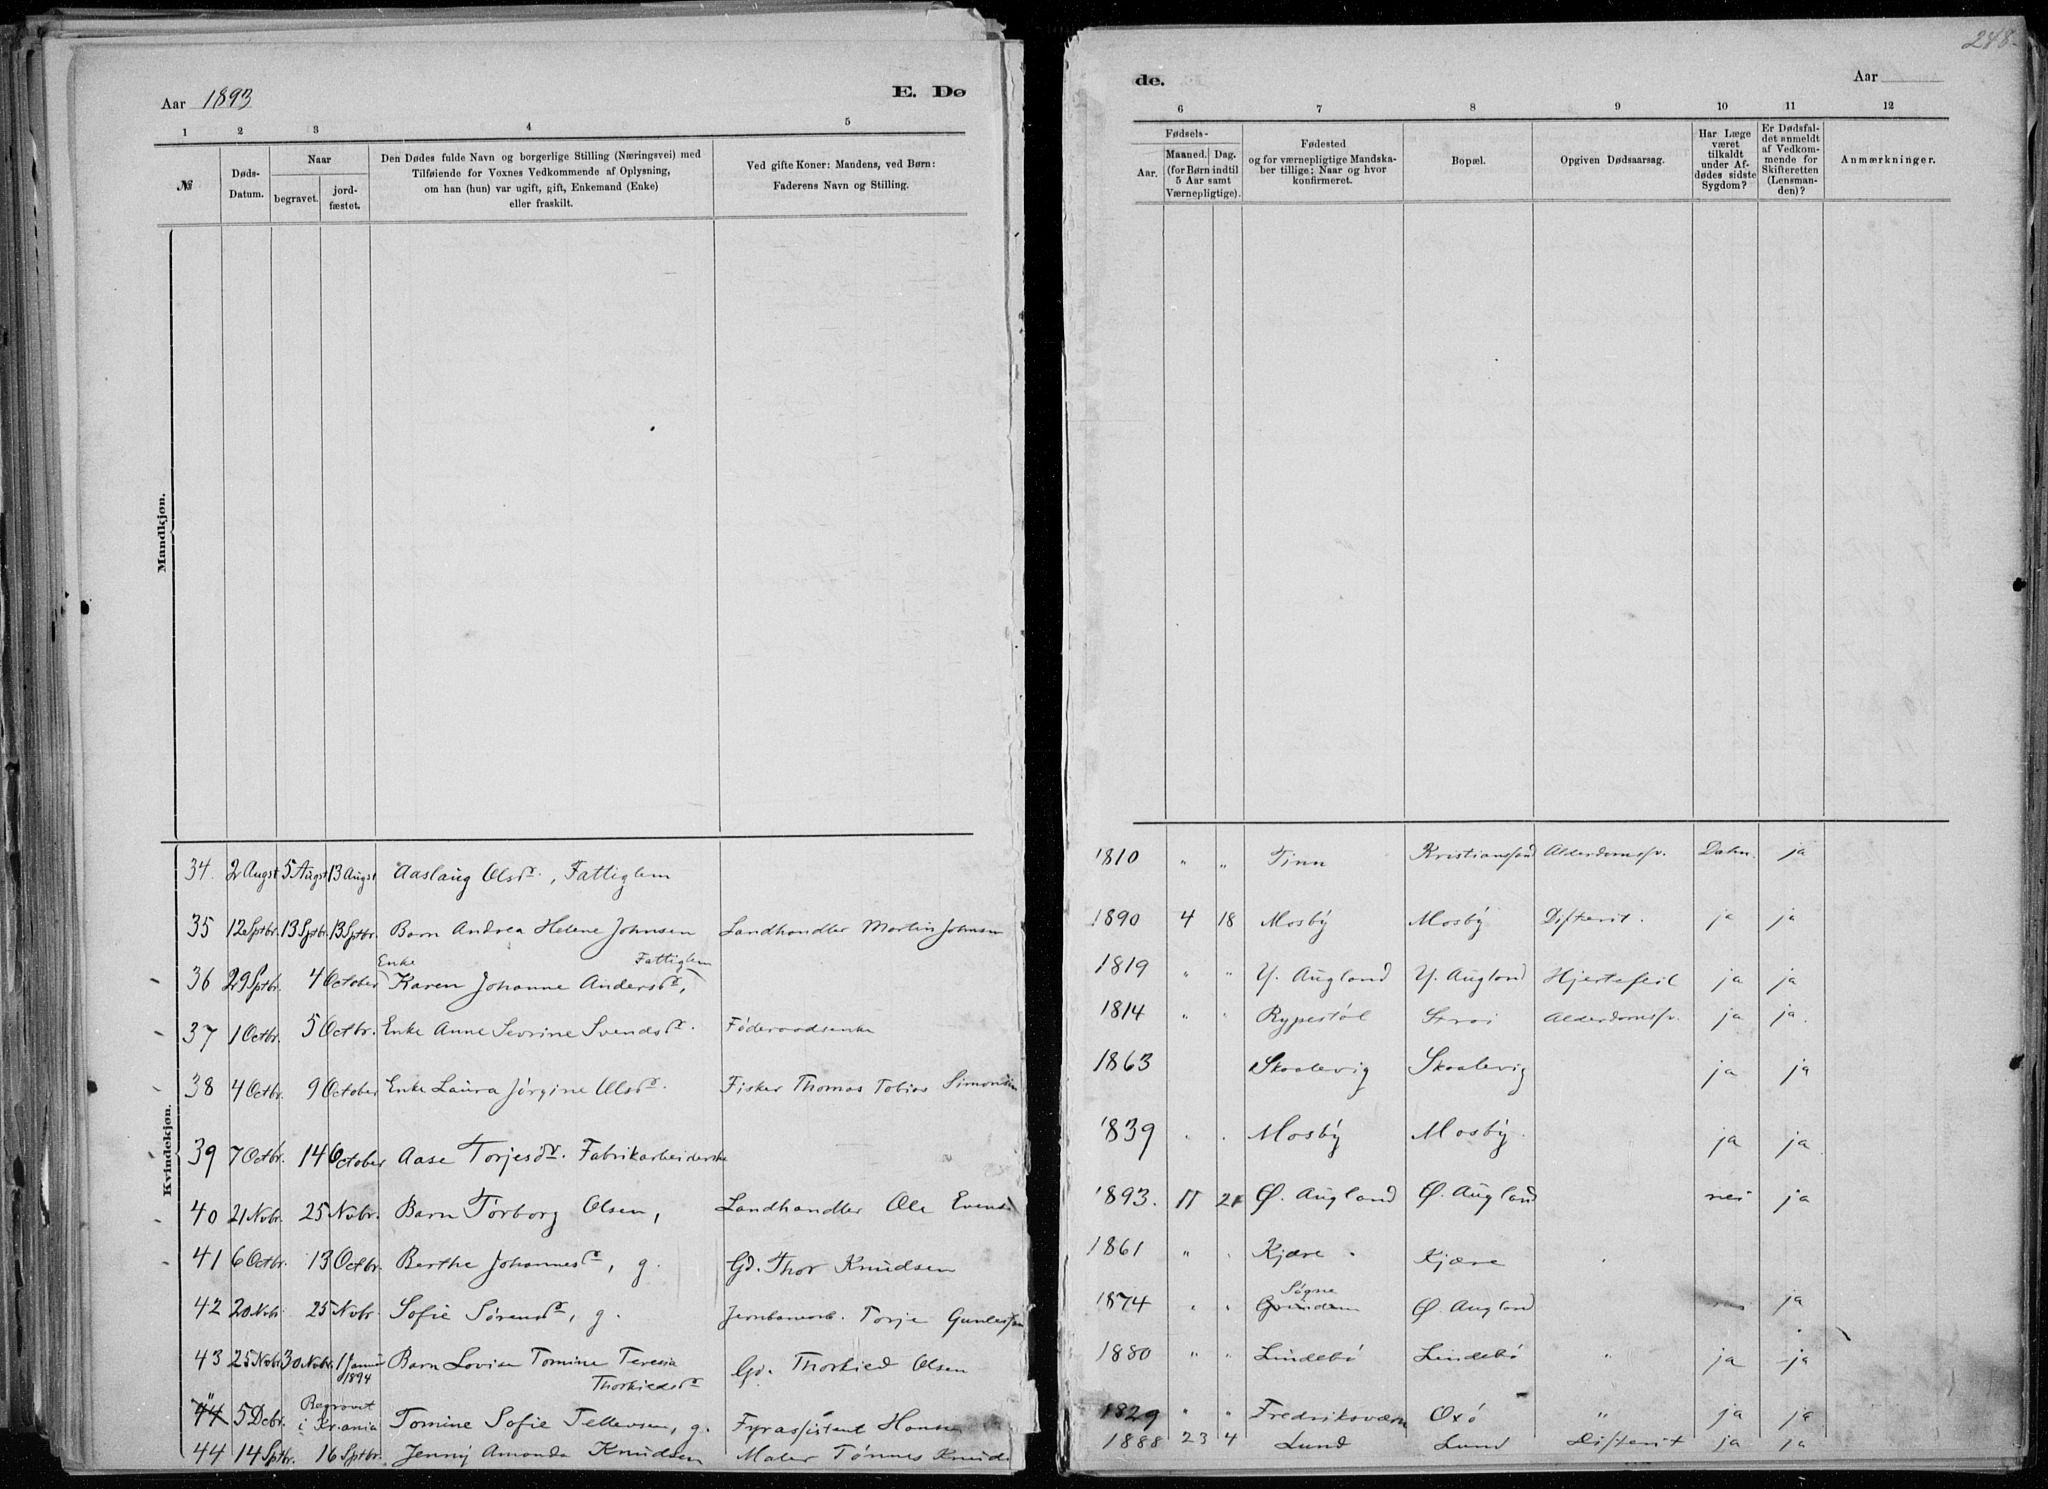 248.
Aar 1893
E. Dø
de.
Aar
1 2 3 4 5
6 7 8 9 10 11 12
№
Døds-
Datum.
Naar
begravet.
jord-
fæstet.
Den Dødes fulde Navn og borgerlige Stilling (Næringsvei) med
Tilføiende for Voxnes Vedkommende af Oplysning,
om han (hun) var ugift, gift, Enkemand (Enke)
eller fraskilt.
Ved gifte Koner: Mandens, ved Børn:
Faderens Navn og Stilling.
Fødsels-
Aar.
Maaned.
Dag.
(for Børn indtil
5 Aar samt
Værnepligtige).
Fødested
og for værnepligtige Mandska-
ber tillige: Naar og hvor
konfirmeret.
Bopæl.
Opgiven Dødsaarsag.
Har Læge
været
tilkaldt
under Af-
dødes sidste
Sygdom?
Er Dødsfal-
det anmeldt
af Vedkom-
mende for
Skifteretten
(Lensman-
den)?
Anmærkninger.
Mandkjøn.
Kvindekjøn.
34. 2 Augst 5 Augst 13 Augst Aaslaug Olsdr., Fattiglem 1810 " " Tinn Kristianssand Alderdomssv. ja
35 12 Sptbr. 13 Sptbr. 13 Sptbr. Barn Andrea Helene Johnsen Landhandler Martin Johnsen 1890 4 18 Mosby Mosby Difterit. ja ja
Enke Fattiglem
36 29 Sptbr. 4 October Karen Johanne Andersdr, 1819 " " Y. Augland Y. Augland Hjertefeil ja ja
37 1 Octbr. 5 Octbr. Enke Anne Sevrine Svendsdr. Føderaadsenke 1814 " " Rypestøl Strai Alderdomssv. ja ja.
38 4 Octbr. 9 October Enke Laura Jørgine Olsdr. Fisker Thomas Tobias Simonsen 1863 Skaalevig Skaalevig ja ja
39 7 Octbr. 14 October Aase Torjesdr. Fabrikarbeiderske 1839 " . Mosby Mosby. ja ja
40 21 Nvbr. 25 Nvbr. Barn Torborg Olsen, Landhandler Ole Evens 1893. 11 21 Ø. Augland Ø. Augland nei ja
41 6 Octbr. 13 Octbr. Berthe Johannesdr, g. Gd. Thor Knudsen 1861 " . Kjære . Kjære
Søgne
42 20 Nvbr. 25 Nvbr. Sofie Sørensdr, g. Jernbanearb. Torje Gunlefsen 1874 " " Grunden Ø. Augland ja
43 25 Nvbr. 30 Nvbr. 1 Januar 1894 Barn Lovise Tomine Teresia Gd. Thorkied Olsen 1880 " " Lindebø Lindebø " ja ja
Thorkiedsdr
44 5 Dcbr. Begravet i Kr.ania Tomine Sofie Tellevsen, g. Fyrassistent Hansen 1829 " " Fredriksværn Oxø " ja ja
44 14 Sptbr. 16 Sptbr. Jenny Amanda Knudsen Maler Tønnes Knuds 1888 23 4 Lund Lund Difterit ja ja